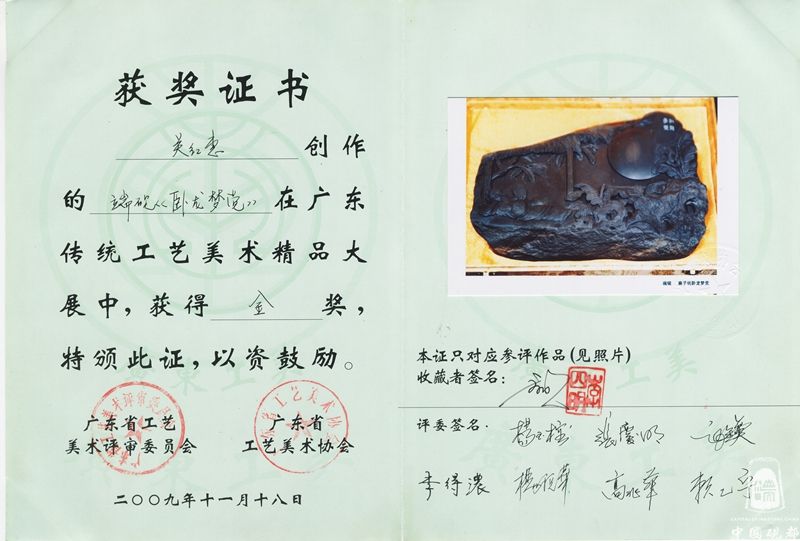 获奖证书
关红惠 创作
的 端砚《卧龙梦觉》 在广东
传统工艺美术精品大
展中，获得 金 奖，
特颁此证，以资鼓励。
广东省工艺
美术评审委员会
广东省
工艺美术协会
二〇〇九年十一月十八日
端砚 麻子坑卧龙梦觉
本证只对应参评作品(见照片)
收藏者签名：
评委签名：
张慶明
李得濃
高兆華
赖乙宁
中国砚都